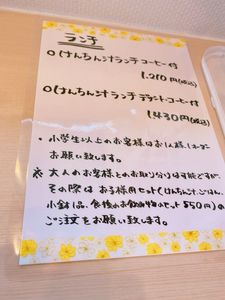 ランチ
○けんちん汁ランチ コーヒー付
1,210円(税込)
○けんちん汁ランチ デザート.コーヒー付
1,430円(税込)
・小学生以上のお客様はお1人様1オーダー
お願い致します。
※大人のお客様とのお取り分けは可能ですが、
その際は お子様用セット(けんちん汁、ごはん、
小鉢1品、食後のお飲み物のセット550円)の
ご注文をお願い致します。